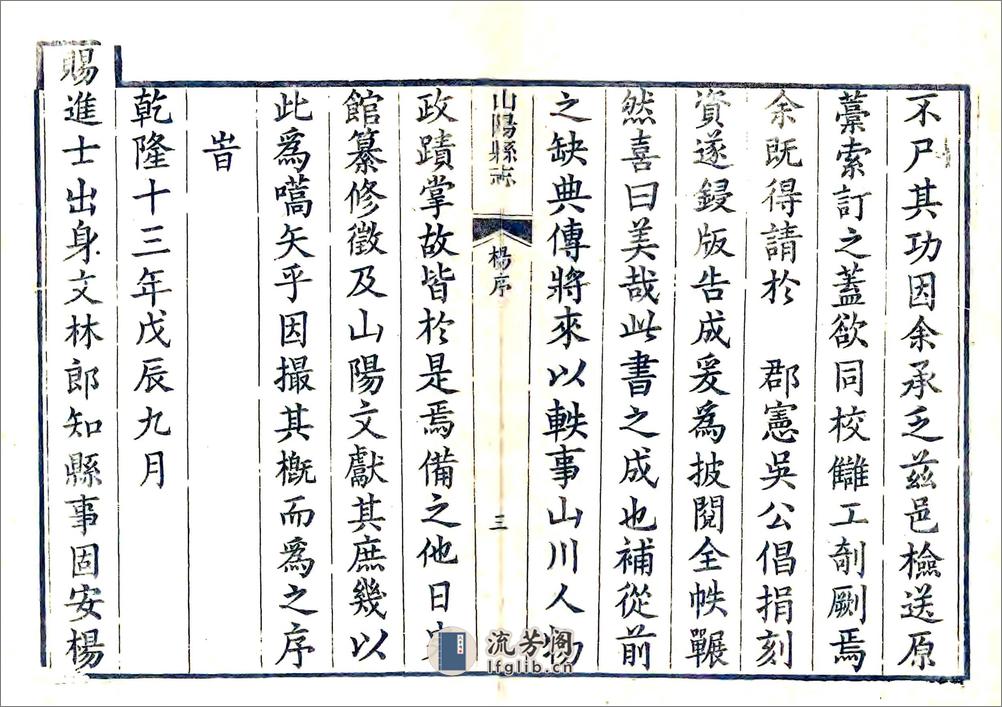 不尸其功因余承乏茲邑檢送原
藁索訂之蓋欲同校讎工剞劂焉
余既得請於　郡憲吳公倡捐刻
資遂鋟版告成爰為披閱全帙囅
然喜曰美哉此書之成也補從前
之缺典傳將來以軼事山川人物
山陽縣志
楊序
三
政蹟掌故皆於是焉備之他日史
館纂修徵及山陽文獻其庶幾以
此為嚆矢乎因撮其概而為之序
旹
乾隆十三年戊辰九月
賜進士出身文林郎知縣事固安楊
流芳阁
lfglib.cn